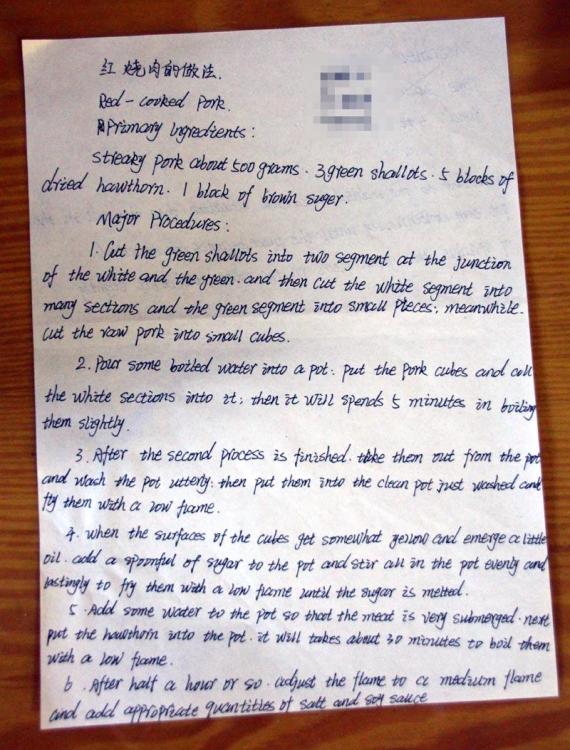 红烧肉的做法.
Red-cooked Pork.
Primary Ingredients:
Streaky Pork about 500 grams. 3 green shallots. 5 blocks of
dried hawthorn. 1 block of brown suger.
Major Procedures:
1. Cut the green shallots into two segment at the junction
of the white and the green. and then cut the white segment into
many sections and the green segment into small pieces; meanwhile.
cut the raw pork into small cubes.
2. Pour some boiled water into a pot. put the pork cubes and all
the white sections into it; then it will spends 5 minutes in boiling
them slightly.
3. After the second process is finished. take them out from the pot
and wach the pot utterly. then put them into the clean pot just washed and
fry them with a low flame.
4. when the surfaces of the cubes get somewhat yellow and emerge a little
oil. add a spoonful of sugar to the pot and stir all in the pot evenly and
lastingly to fry them with a low flame until the sugar is melted.
5. Add some water to the pot so that the meat is very submerged. next
put the hawthorn into the pot. it will takes about 30 minutes to boil them
with a low flame.
6. After half a hour or so. adjust the flame to a medium flame
and add appropriate quantities of salt and soy sauce